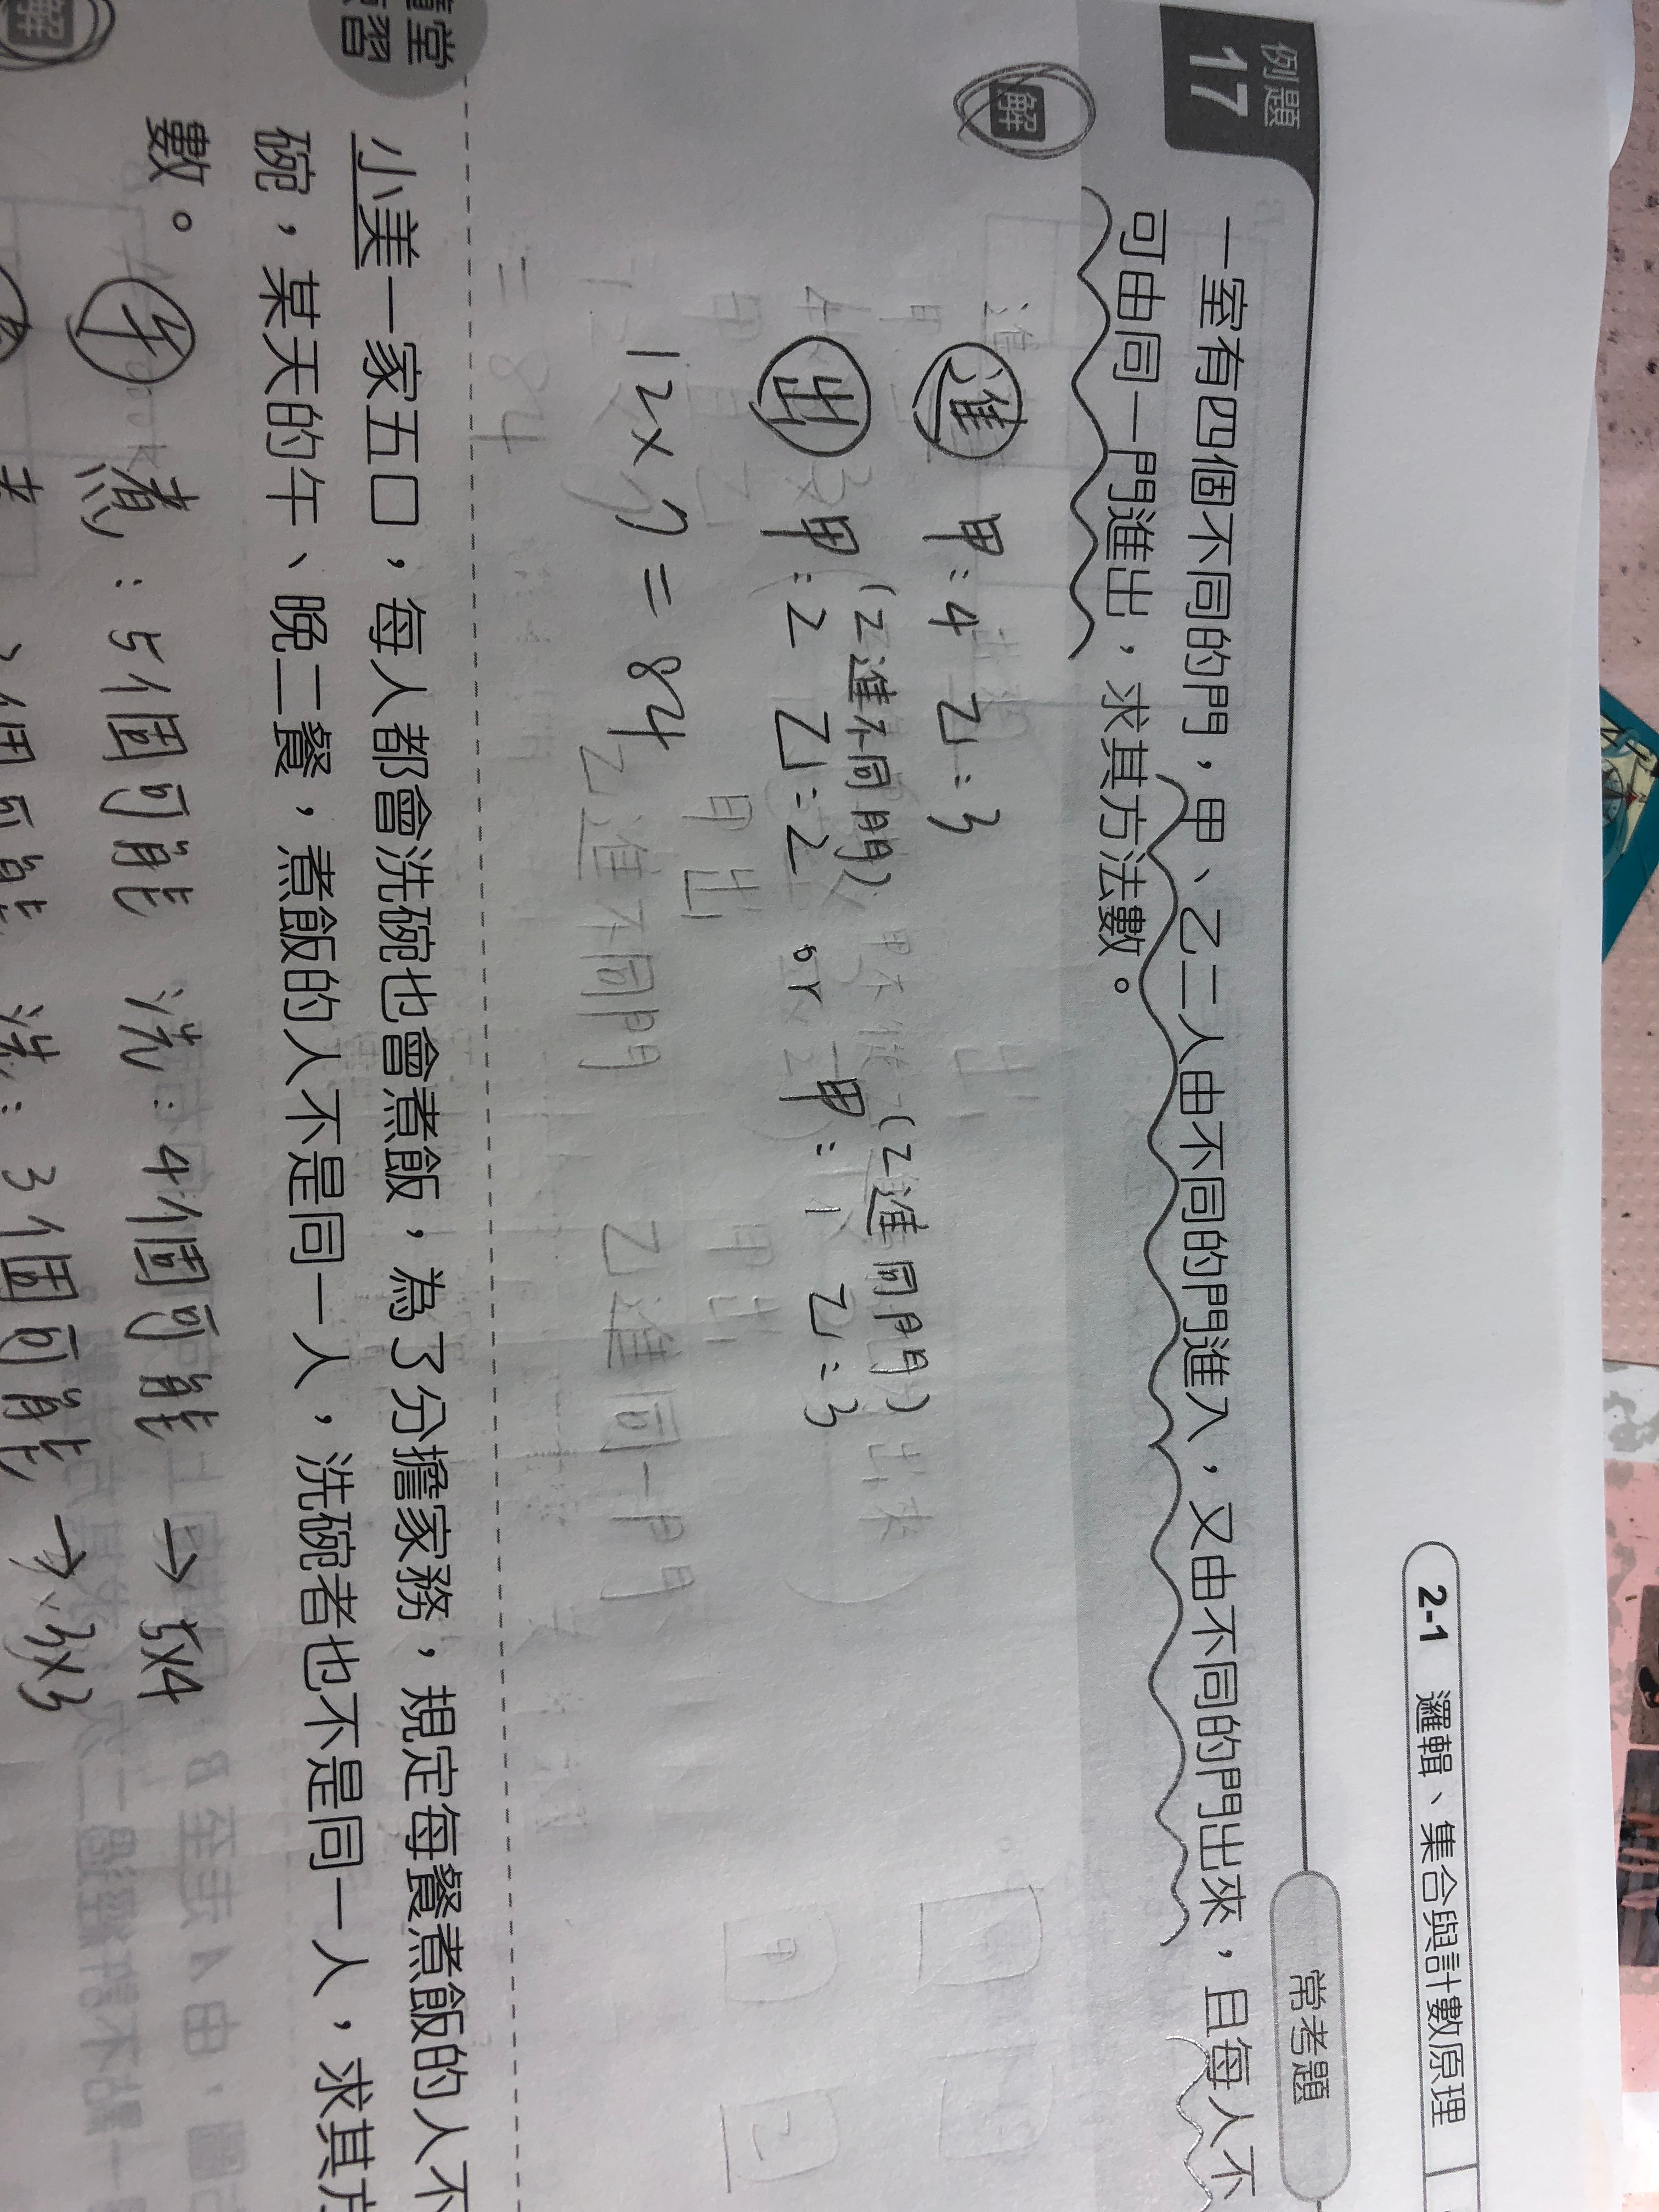 2-1 邏輯、集合與計數原理
常考題
例題
17
一室有四個不同的門，甲、乙二人由不同的門進入，又由不同的門出來，且每人不
可由同一門進出，求其方法數。
解
進 甲:4 乙:3
(乙進不同門) (乙進同門)
出 甲:2 乙:2 or 甲:1 乙:3
12×7=84
堂
習
小美一家五口，每人都會洗碗也會煮飯，為了分擔家務，規定每餐煮飯的人不
碗，某天的午、晚二餐，煮飯的人不是同一人，洗碗者也不是同一人，求其方
數。
解
午 煮:5個可能 洗:4個可能 → 5×4
3個可能